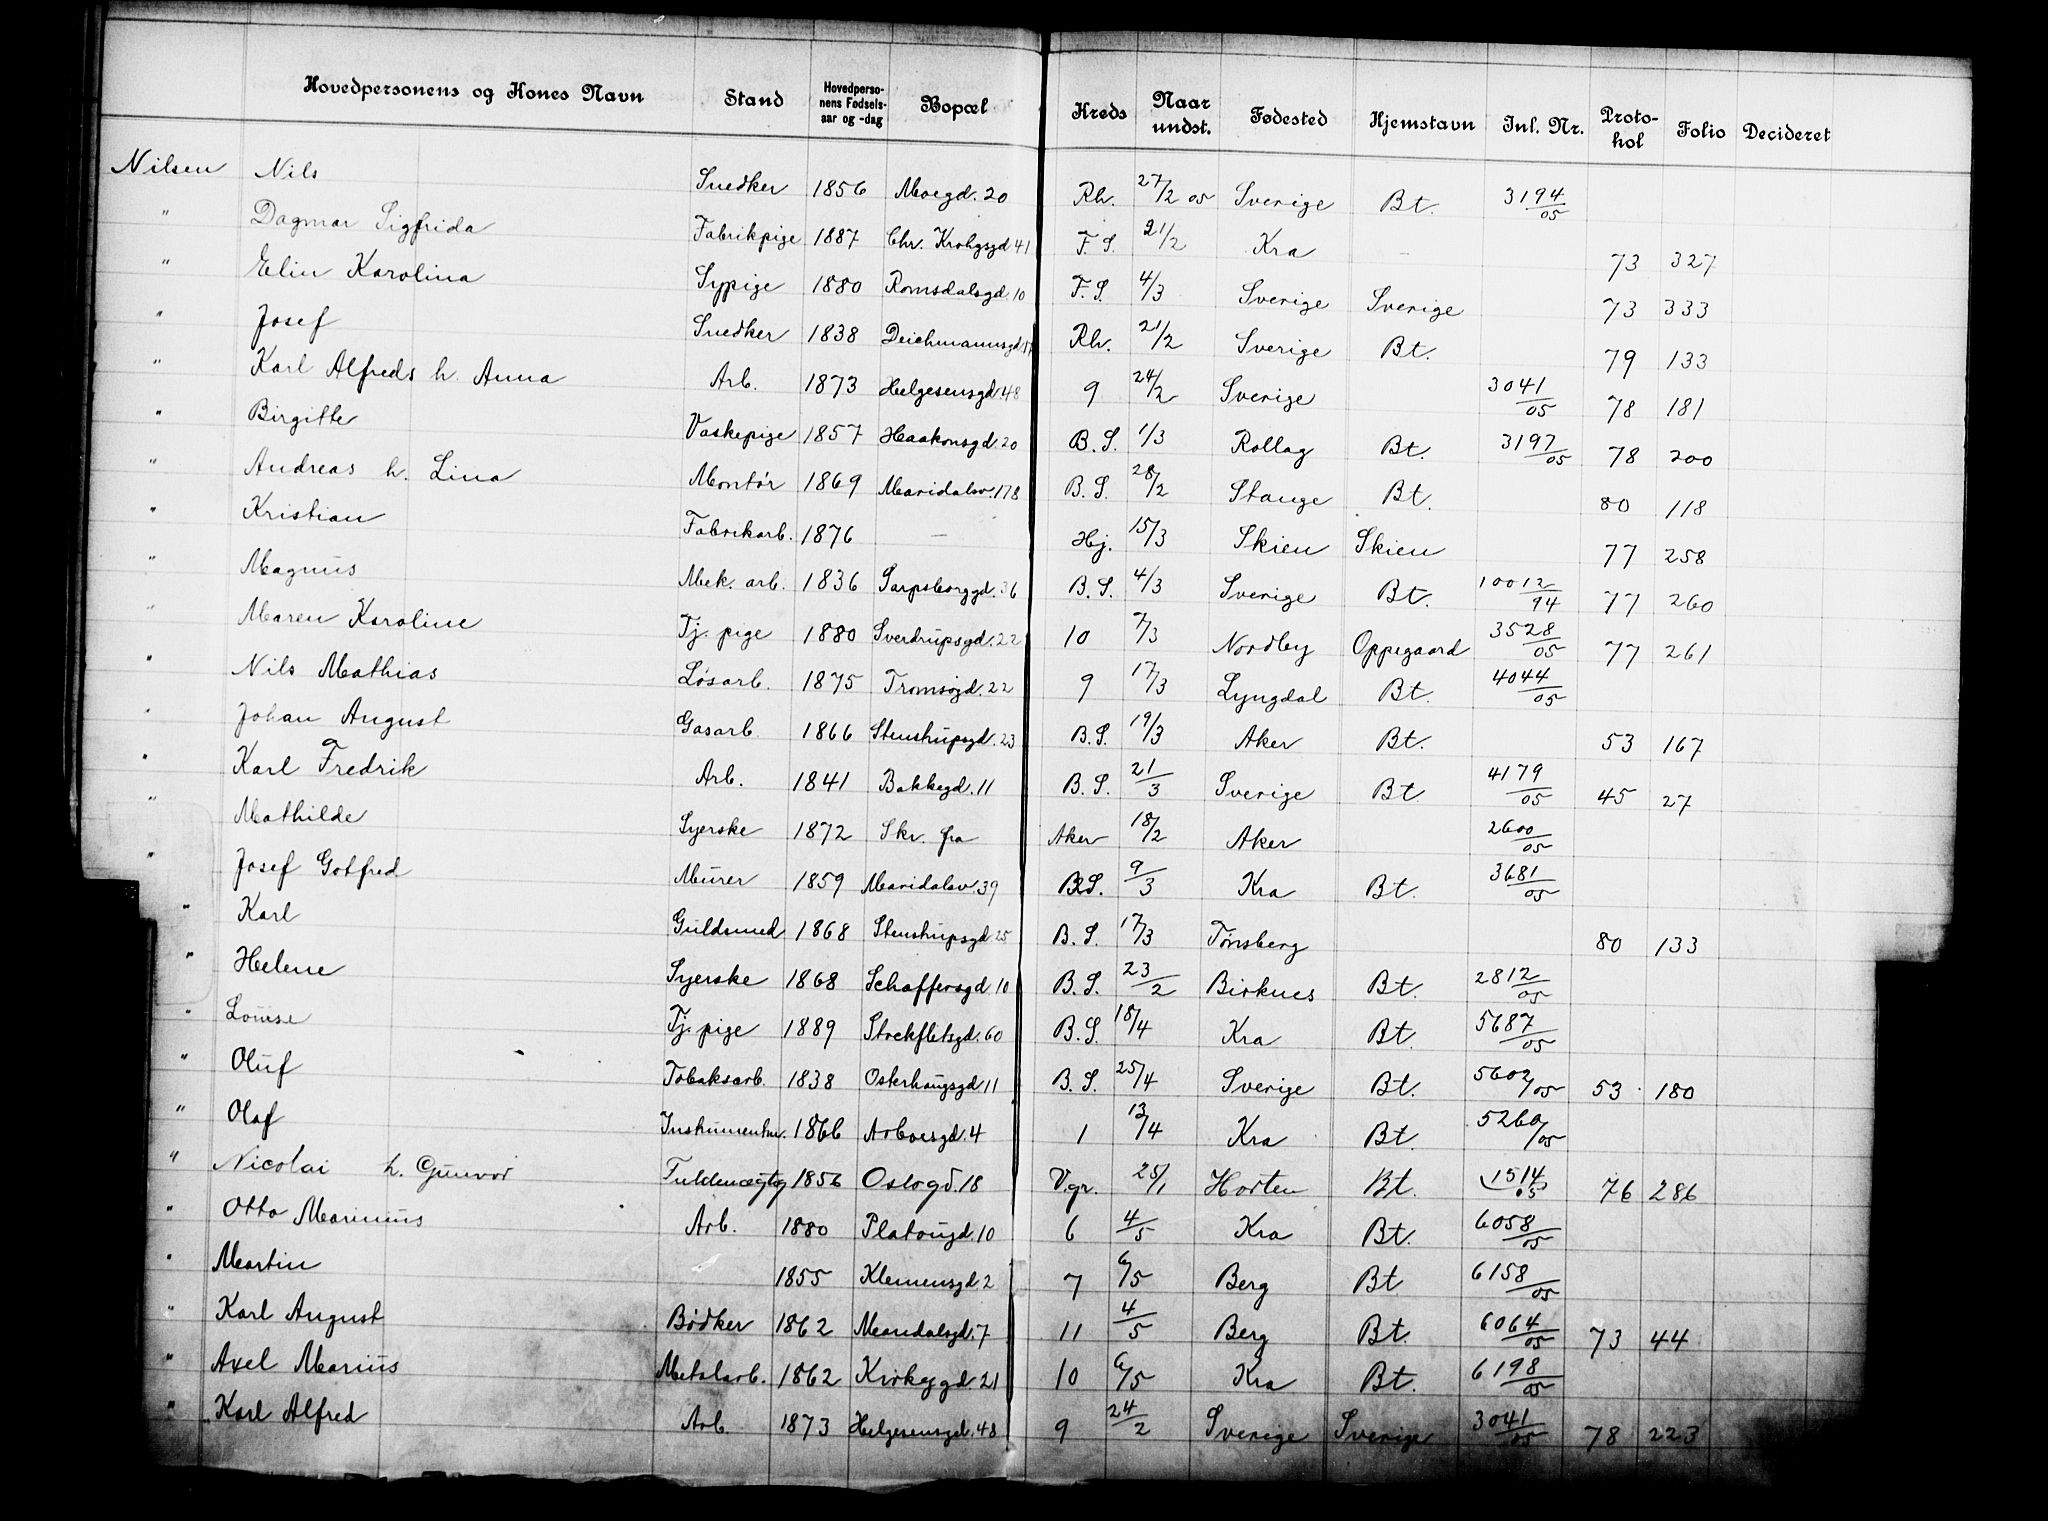 Hovedpersonens og Kones Navn Stand Hovedperso-nens Fødsels-aar og -dag Bopæl Kreds Naar undst. Fødested Hjemstavn Inl. Nr. Proto-kol Folio Decideret
Nilsen Nils Snedker 1856 Moegd. 20 Rh. 27/2 05 Sverige Bt. 3194/05
" Dagmar Sigfrida Fabrikpige 1887 Chr. Krohgsgd 41 F. S. 21/2 Kra — 73 327
" Elin Karolina Sypige 1880 Romsdalsgd 10 F. S. 4/3 Sverige Sverige 73 333
" Josef Snedker 1838 Deichmannsgd Rh. 21/2 Sverige Bt. 79 133
" Karl Alfreds h. Anna Arb. 1873 Helgesensgd. 48 9 24/2 Sverige 3041/05 78 181
" Birgitte Vaskepige 1857 Haakonsgd. 20 B. S. 1/3 Rollag Bt. 3197/05 78 200
" Andreas h. Lina Montør 1869 Maridalsv. 178 B. S. 28/2 Stange Bt. 80 118
" Kristian Fabrikarb. 1876 — Hj. 15/3 Skien Skien 77 258
" Magnus Mek. arb. 1836 Sarpsborggd. 36 B. S. 4/3 Sverige Bt. 10012/94 77 260
" Maren Karoline Tj. pige 1880 Sverdrupsgd. 22 10 7/3 Nordby Oppegaard 3528/05 77 261
" Nils Mathias Løsarb. 1875 Tromsøgd. 22 9 17/3 Lyngdal Bt. 4044/05
" Johan August Gasarb. 1866 Stenstrupsgd. 23 B. S. 19/3 Aker Bt. 53 167
" Karl Fredrik Arb. 1841 Bakkegd. 11 B. S. 21/3 Sverige Bt. 4179/05 45 27
" Mathilde Syerske 1872 Skr. fra Aker 18/2 Aker 2600/05
" Josef Gotfred Murer 1859 Maridalsv. 39 B.S. 9/3 Kra Bt. 3681/05
" Karl Guldsmed 1868 Stenstrupsgd 25 B. S. 17/3 Tønsberg 80 133
" Helene Syerske 1868 Schaffersgd 10 B. S. 23/2 Birknes Bt. 2812/05
" Louise Tj. pige 1889 Stockfletsgd. 60 B. S. 18/4 Kra Bt. 5687/05
" Oluf Tobaksarb. 1838 Osterhaugsgd 11 B. S. 25/4 Sverige Bt. 5602/05 53 180
" Olaf Instrumentm. 1866 Arboesgd. 4 1 13/4 Kra Bt. 5260/05
" Nicolai h. Gunvor Fuldmægtig 1856 Oslogd. 18 Vgr. 25/1 Horten Bt. 1514/05 76 286
" Otto Marinius Arb. 1880 Platougd. 10 6 4/5 Kra Bt. 6058/05
" Martin 1855 Klemensgd 2 7 6/5 Berg Bt 6158/05
" Karl August Bødker 1862 Mandalsgd. 7 11 4/5 Berg Bt. 6064/05 73 44
" Axel Marius Metalarb. 1862 Kirkeggd. 21 10 6/5 Kra Bt. 6198/05
" Karl Alfred Arb. 1873 Helgesensgd. 48 9 24/2 Sverige Sverige 3041/05 78 223